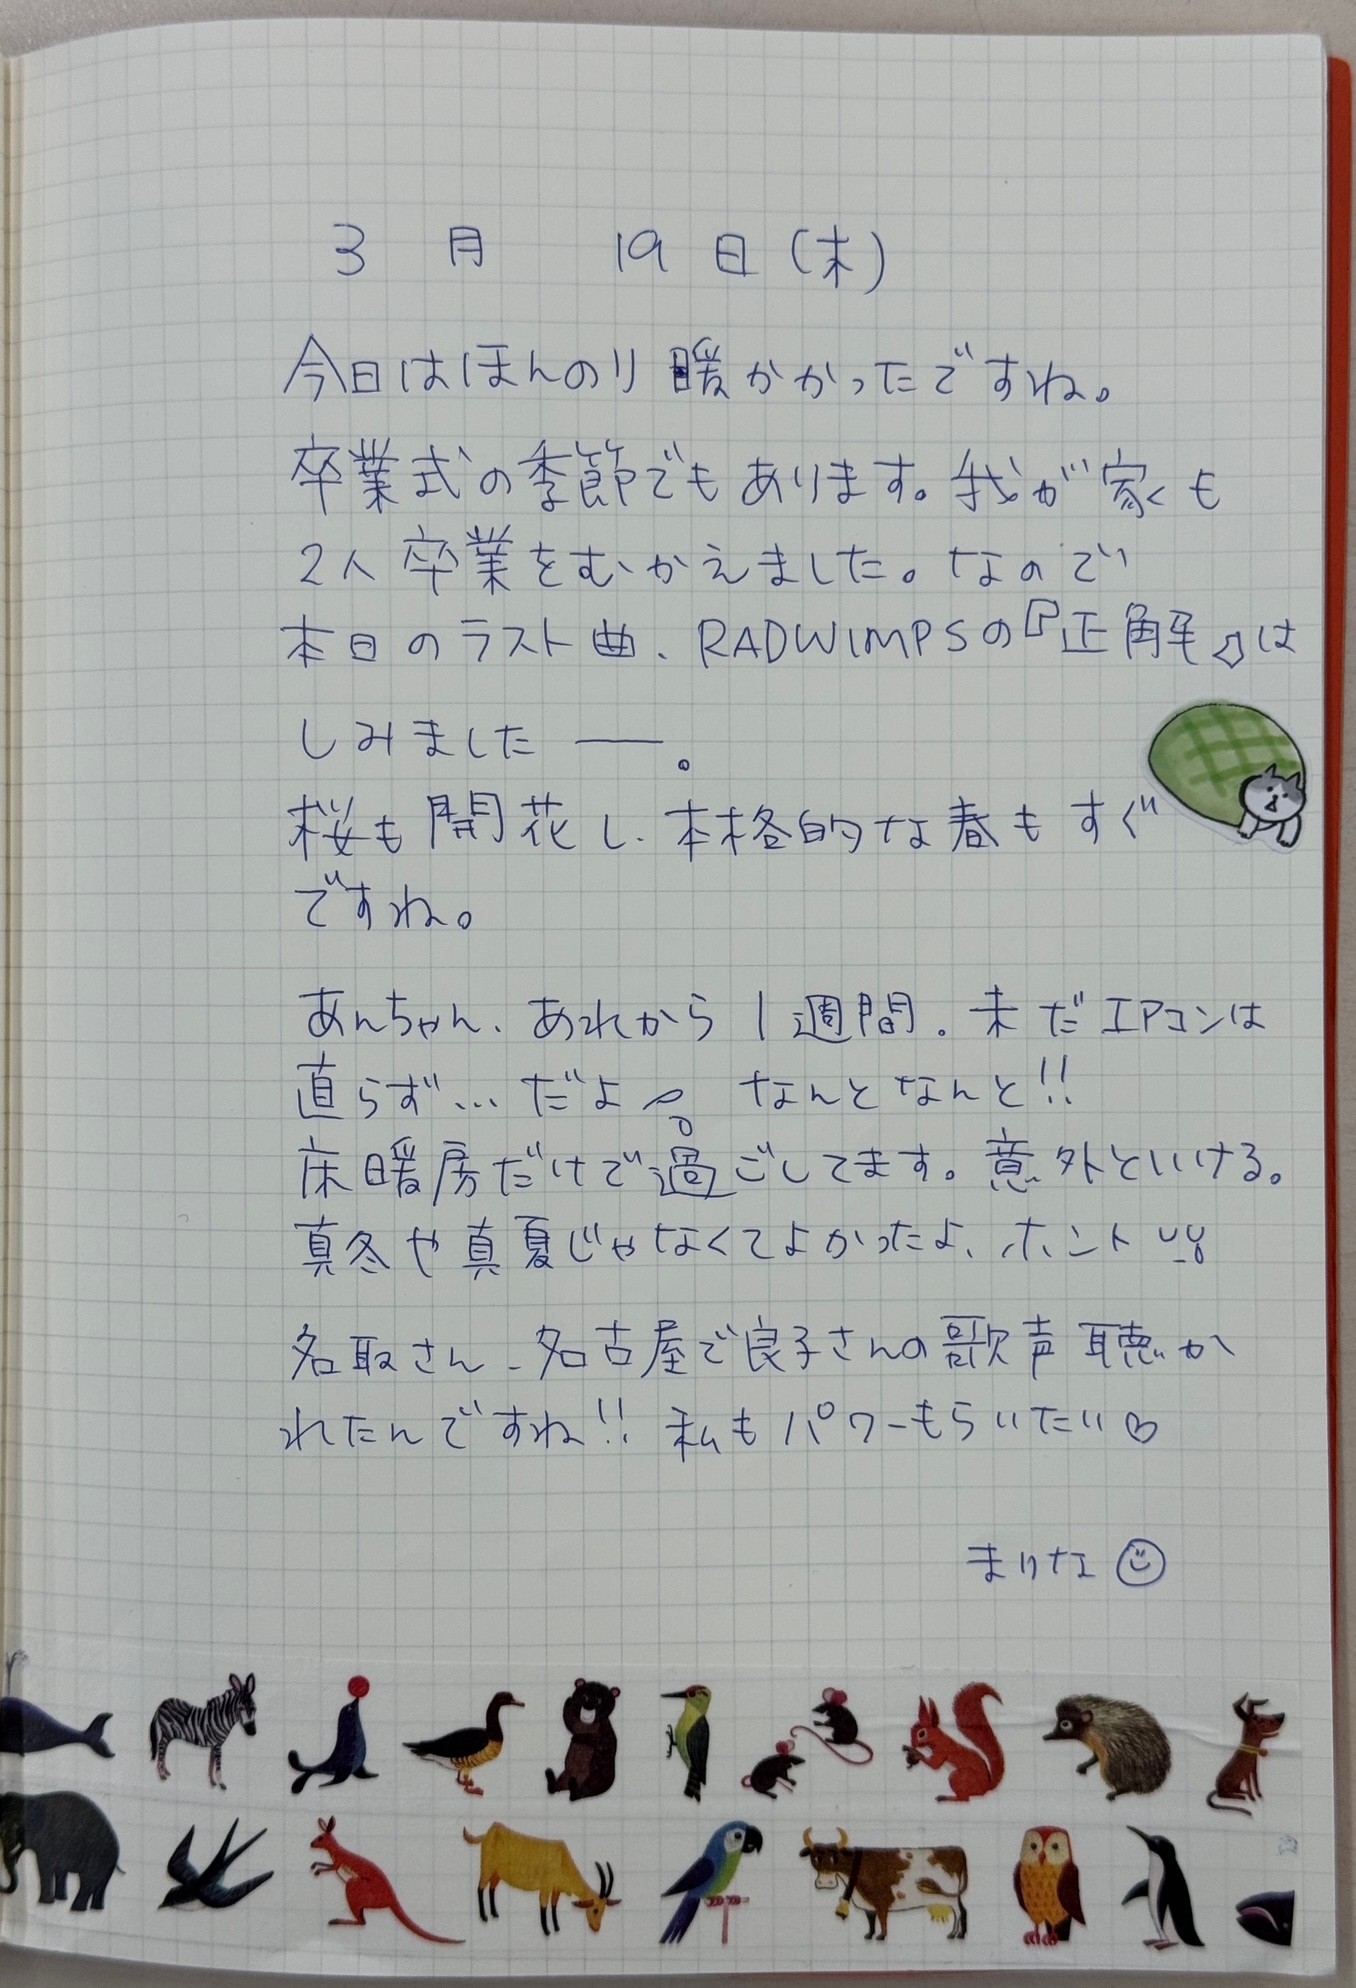 3月 19日(木)
今日はほんのり暖かかったですね。
卒業式の季節でもあります。我が家も
2人卒業をむかえました。なので
本日のラスト曲、RADWIMPSの『正解』は
しみました――。
桜も開花し、本格的な春もすぐ
ですね。
あんちゃん、あれから1週間。未だエアコンは
直らず…だよ。 なんとなんと!!
床暖房だけで過ごしてます。意外といける。
真冬や真夏じゃなくてよかったよ、ホント
名取さん、名古屋で良子さんの歌声聴か
れたんですね!! 私もパワーもらいたい♡
まりな☺